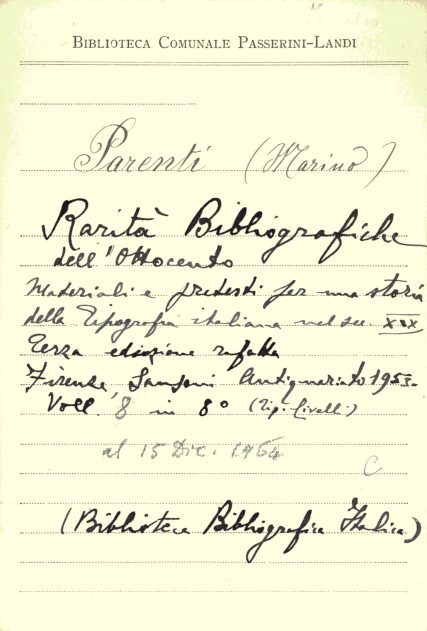 BIBLIOTECA COMUNALE PASSERINI-LANDI
Parenti (Marino)
Rarità Bibliografiche
dell'Ottocento
Materiali e pretesti per una storia
della Tipografia italiana nel sec. XIX
Terza edizione rifatta
Firenze, Sansoni Antiquariato 1953-
Voll. 8 in 8° (Tip. Civelli)
al 15 Dic. 1964
C
(Biblioteca Bibliografica Italica.)